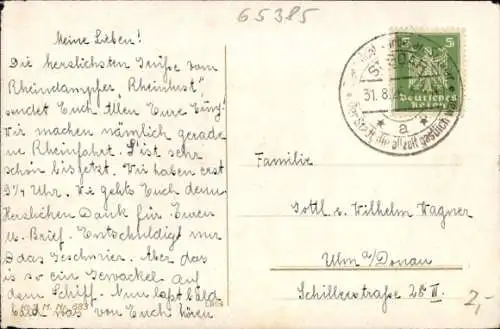 65385
Meine Lieben!
Die herzlichsten Grüße vom
Rheindampfer "Rheinlust",
sendet Euch Allen Eure
Wir machen nämlich gerade
ne Rheinfahrt. S'ist sehr
schön bis jetzt. Wir haben erst
9¼ Uhr. Wie gehts Euch denn
Herzlichen Dank für Euren
u. Brief. Entschuldigt nur
das Geschmier. Aber das
is so ein Gewackel auf
dem Schiff. Nun laßt bald
was von Euch hören
5 5
Deutsches
31.8.
a
die Stadt, die allzeit gastlich
Familie
Gottl. u. Wilhelm Wagner
Ulm a/Donau
Schillerstraße 28 II
2,-